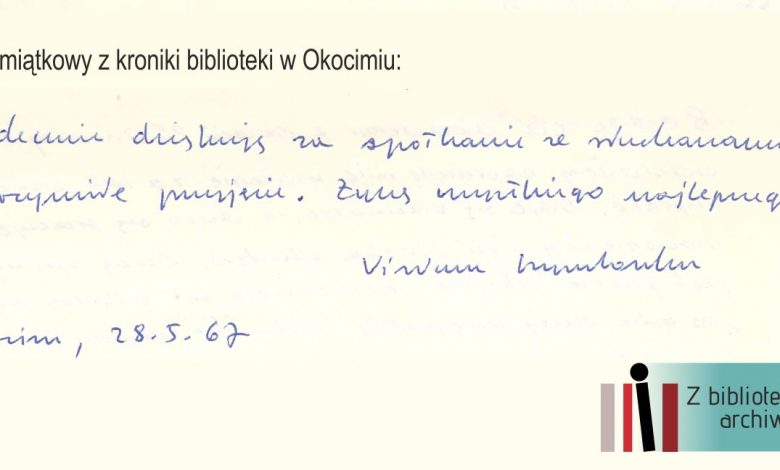 miątkowy z kroniki biblioteki w Okocimiu:
decznie dziękuję za spotkanie ze słuchaczami
przyjęcie. Życzę wszystkiego najlepszeg
im, 28.5.67
Z bibliote
archiw